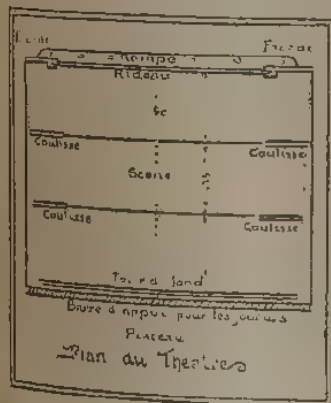 Rampe
Rideau
Coulisse Coulisse
Scène
Coulisse Coulisse
Toile de fond
Barre d'appui pour les joueurs
Plan du Theatre